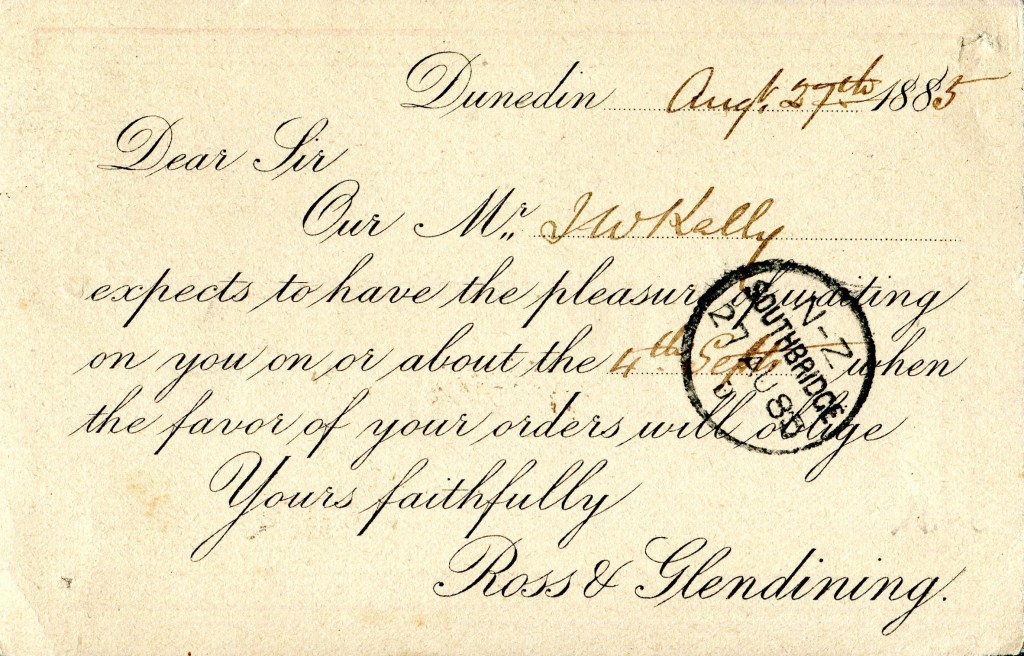 Dunedin Augt. 27th 1885
Dear Sir
Our Mr. J W Kelly
expects to have the pleasure of waiting
on you on or about the 4th Sept when
the favor of your orders will oblige
Yours faithfully
Ross & Glendining.
N-Z
SOUTHBRIDGE
27 AU 85